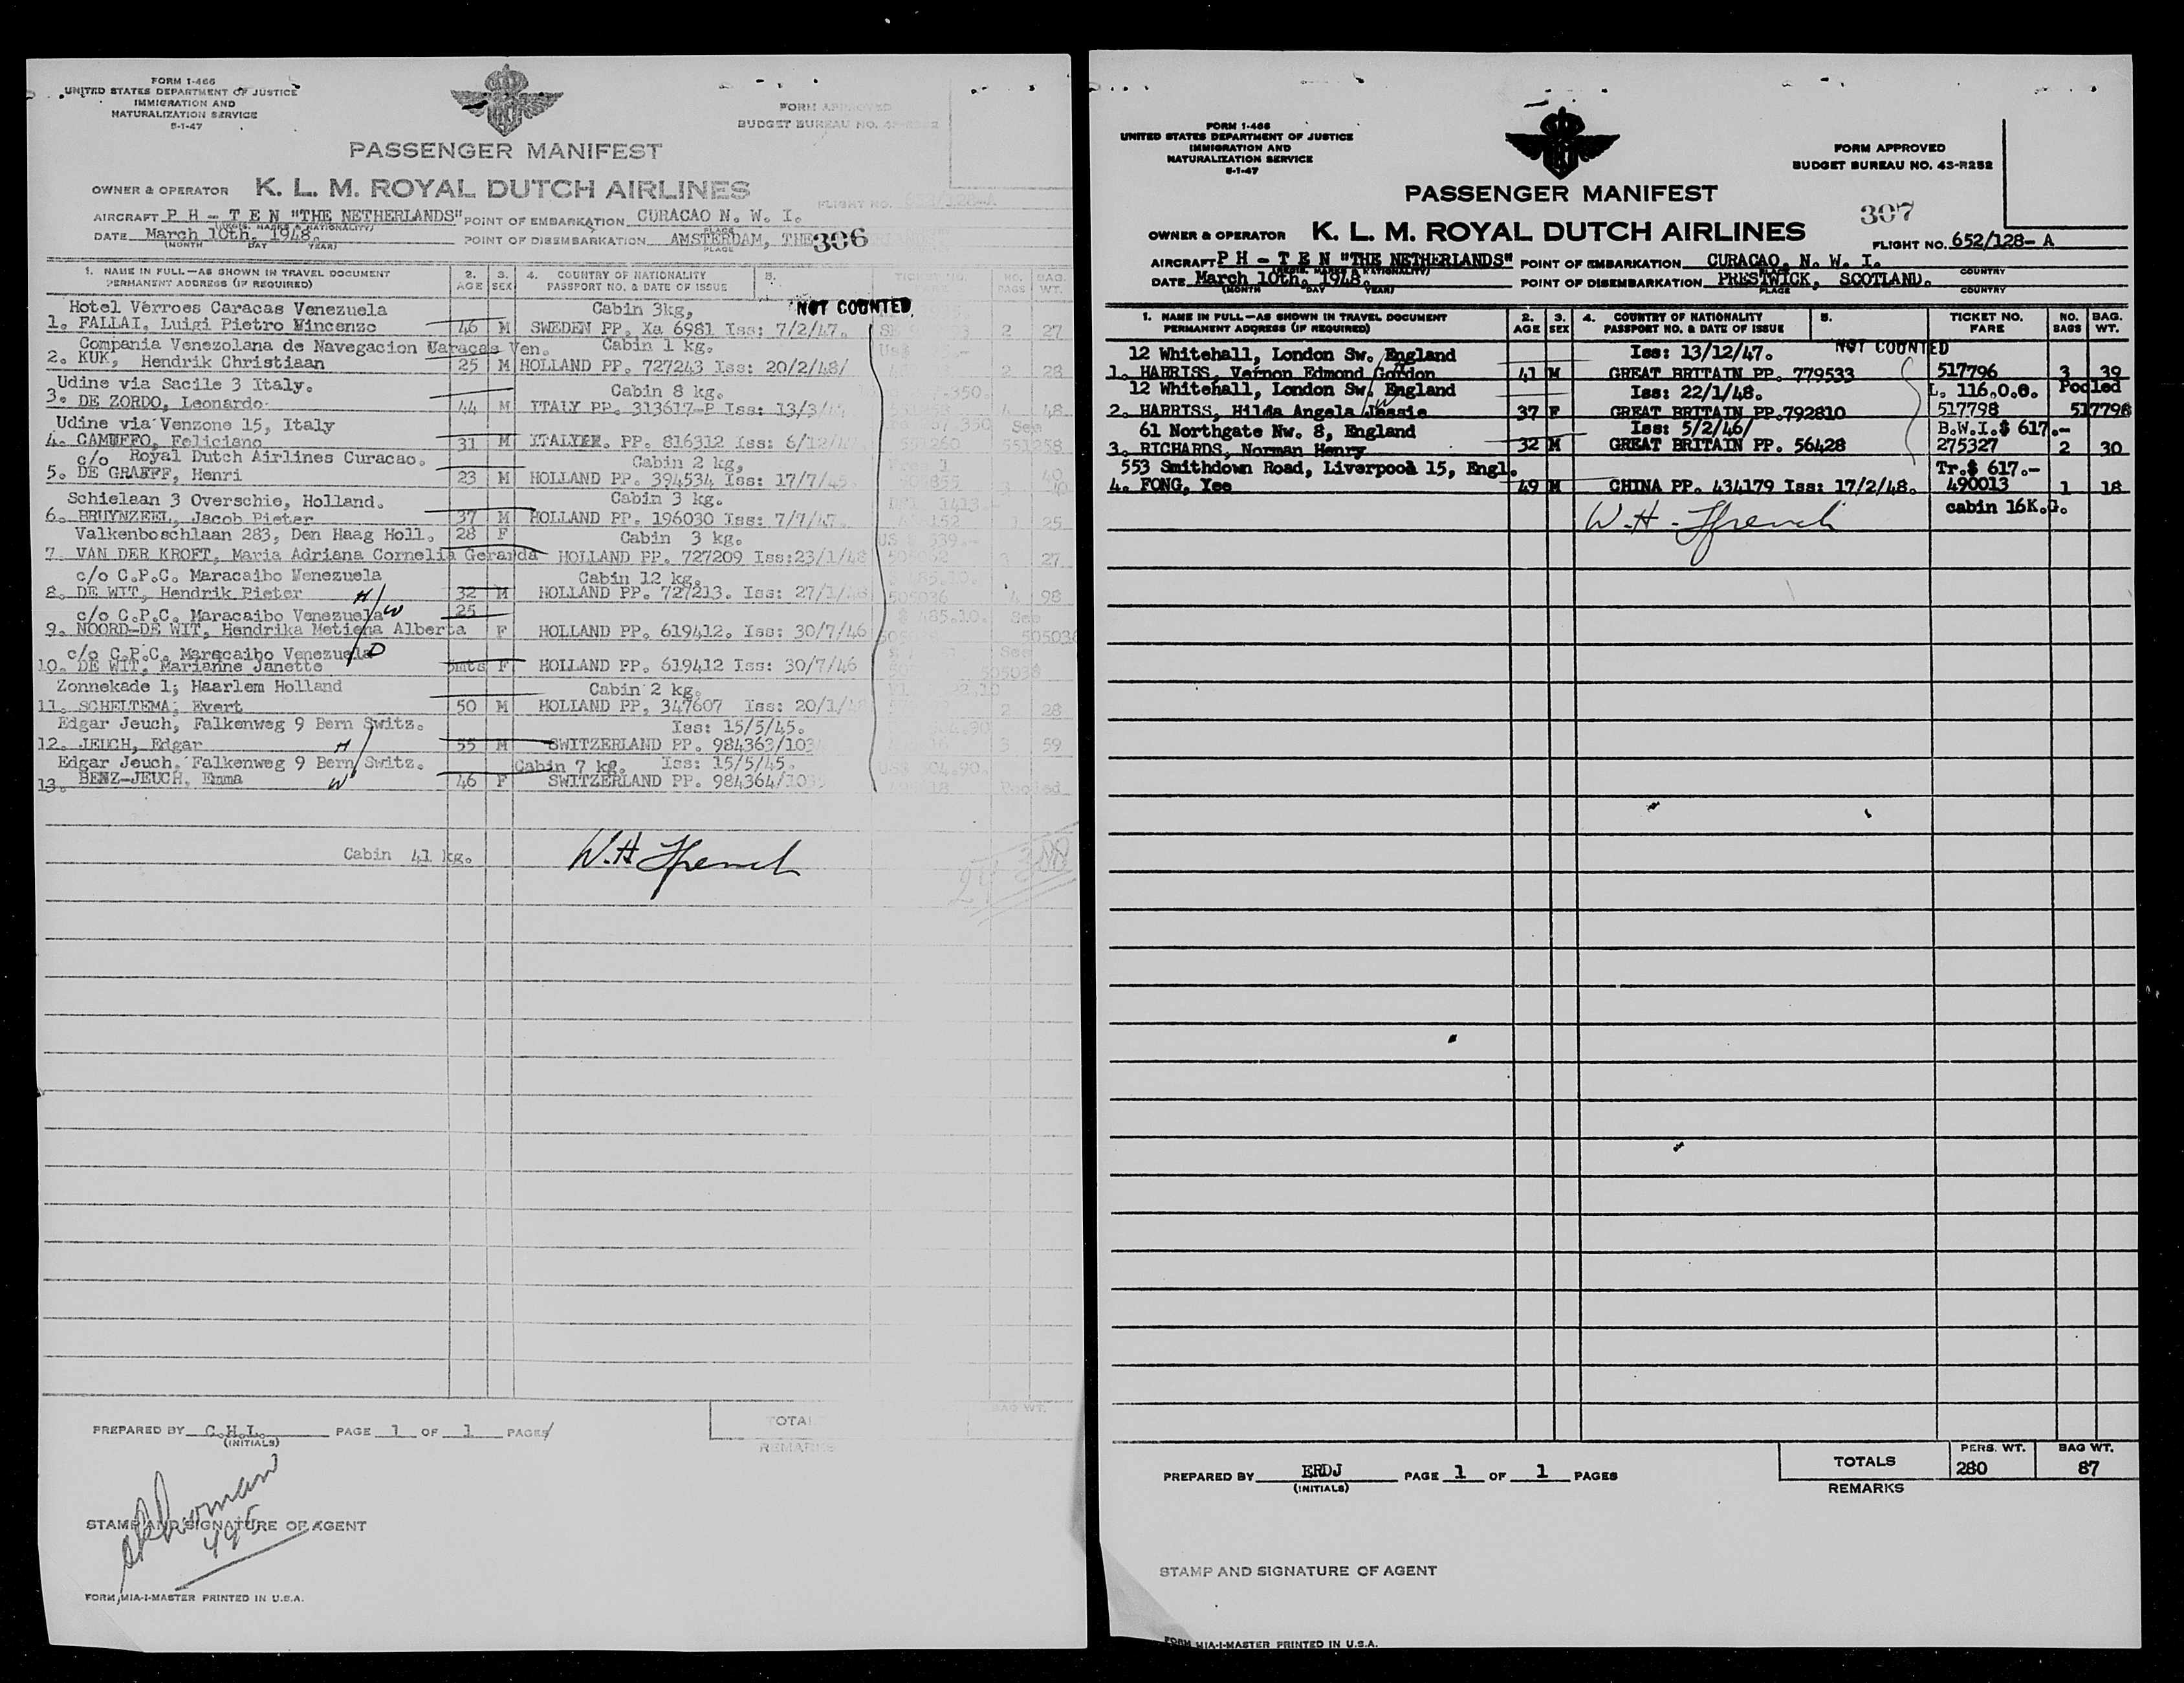 FORM I-466
UNITED STATES DEPARTMENT OF JUSTICE
IMMIGRATION AND
NATURALIZATION SERVICE
5-1-47
FORM APPROVED
BUDGET BUREAU NO.
PASSENGER MANIFEST
OWNER & OPERATOR K. L. M. ROYAL DUTCH AIRLINES
FLIGHT NO.
AIRCRAFT P H - T E N "THE NETHERLANDS" POINT OF EMBARKATION CURACAO N. W. I.
(REGIS. MARKS & NATIONALITY) PLACE
DATE March 10th. 1948. POINT OF DISEMBARKATION AMSTERDAM, THE 306
(MONTH DAY YEAR) PLACE
1. NAME IN FULL—AS SHOWN IN TRAVEL DOCUMENT 2. 3. 4. COUNTRY OF NATIONALITY 5. TICKET NO. NO. BAG.
PERMANENT ADDRESS (IF REQUIRED) AGE SEX PASSPORT NO. & DATE OF ISSUE BAGS WT.
Hotel Verroes Caracas Venezuela Cabin 3kg, NOT COUNTED
1. FALLAI, Luigi Pietro Vincenzo 46 M SWEDEN PP. Xa 6981 Iss: 7/2/47. 2 27
Compania Venezolana de Navegacion Caracas Ven. Cabin 1 kg.
2. KUK, Hendrik Christiaan 25 M HOLLAND PP. 727243 Iss: 20/2/48/ 2 28
Udine via Sacile 3 Italy. Cabin 8 kg. 350.
3. DE ZORDO, Leonardo 44 M ITALY PP. 313617-P Iss: 13/3/ 4 48
Udine via Venzone 15, Italy 350 See
4. CAMUFFO, Feliciano 31 M ITALYEN. PP. 816312 Iss: 6/12/ 551258
c/o Royal Dutch Airlines Curacao. Cabin 2 kg,
5. DE GRAEFF, Henri 23 M HOLLAND PP. 394534 Iss: 17/7/45 40
Schielaan 3 Overschie, Holland. Cabin 3 kg.
6. BRUYNZEEL, Jacob Pieter 37 M HOLLAND PP. 196030 Iss: 7/7/47. 25
Valkenboschlaan 283, Den Haag Holl. 28 F Cabin 3 kg.
7. VAN DER KROFT, Maria Adriana Cornelia Geranda HOLLAND PP. 727209 Iss:23/1/48 27
c/o C.P.C. Maracaibo Venezuela Cabin 12 kg.
8. DE WIT, Hendrik Pieter H 32 M HOLLAND PP. 727213. Iss: 27/1/48 505036 4 98
c/o C.P.C. Maracaibo Venezuela W 25 485.10. See
9. NOORD-DE WIT, Hendrika Metiena Alberta F HOLLAND PP. 619412. Iss: 30/7/46 505036
c/o C.P.C. Maracaibo Venezuela D See
10. DE WIT, Marianne Janette F HOLLAND PP. 619412 Iss: 30/7/46 505038
Zonnekade 1; Haarlem Holland Cabin 2 kg.
11. SCHELTEMA; Evert 50 M HOLLAND PP. 347607 Iss: 20/1/ 2 28
Edgar Jeuch, Falkenweg 9 Bern Switz. Iss: 15/5/45.
12. JEUCH, Edgar H 55 M SWITZERLAND PP. 984363/103 3 59
Edgar Jeuch. Falkenweg 9 Bern Switz. Cabin 7 kg. Iss: 15/5/45.
13. BENZ-JEUCH, Emma W 46 F SWITZERLAND PP. 984364/103 Pooled
Cabin 41 kg. W.H. French
388
PREPARED BY C.H.L. PAGE 1 OF 1 PAGES
(INITIALS)
BAG WT.
TOTAL
REMARKS
495
STAMP AND SIGNATURE OF AGENT
FORM MIA-I-MASTER PRINTED IN U.S.A.
FORM I-466
UNITED STATES DEPARTMENT OF JUSTICE
IMMIGRATION AND
NATURALIZATION SERVICE
5-1-47
FORM APPROVED
BUDGET BUREAU NO. 43-R252
PASSENGER MANIFEST
307
OWNER & OPERATOR K. L. M. ROYAL DUTCH AIRLINES
FLIGHT NO. 652/128- A
AIRCRAFT P H - T E N "THE NETHERLANDS" POINT OF EMBARKATION CURACAO, N. W. I.
(REGIS. MARKS & NATIONALITY) PLACE COUNTRY
DATE March 10th. 1948. POINT OF DISEMBARKATION PRESTWICK, SCOTLAND.
(MONTH DAY YEAR) PLACE COUNTRY
1. NAME IN FULL—AS SHOWN IN TRAVEL DOCUMENT 2. 3. 4. COUNTRY OF NATIONALITY 5. TICKET NO. NO. BAG.
PERMANENT ADDRESS (IF REQUIRED) AGE SEX PASSPORT NO. & DATE OF ISSUE FARE BAGS WT.
12 Whitehall, London Sw. England Iss: 13/12/47. NOT COUNTED
1. HARRISS, Vernon Edmond Gordon 41 M GREAT BRITAIN PP. 779533 517796 3 39
12 Whitehall, London Sw. England W Iss: 22/1/48. L. 116.0.0. Pooled
2. HARRISS, Hilda Angela Jessie 37 F GREAT BRITAIN PP.792810 517798 517796
61 Northgate Nw. 8, England Iss: 5/2/46/ B.W.I.$ 617.-
3. RICHARDS, Norman Henry 32 M GREAT BRITAIN PP. 56428 275327 2 30
553 Smithdown Road, Liverpool 15, Engl. Tr.$ 617.-
4. FONG, Yee 49 M CHINA PP. 434179 Iss: 17/2/48. 490013 1 18
W.H. French cabin 16K.G.
PERS. WT. BAG WT.
TOTALS 280 87
PREPARED BY ERDJ PAGE 1 OF 1 PAGES
(INITIALS)
REMARKS
STAMP AND SIGNATURE OF AGENT
FORM MIA-I-MASTER PRINTED IN U.S.A.